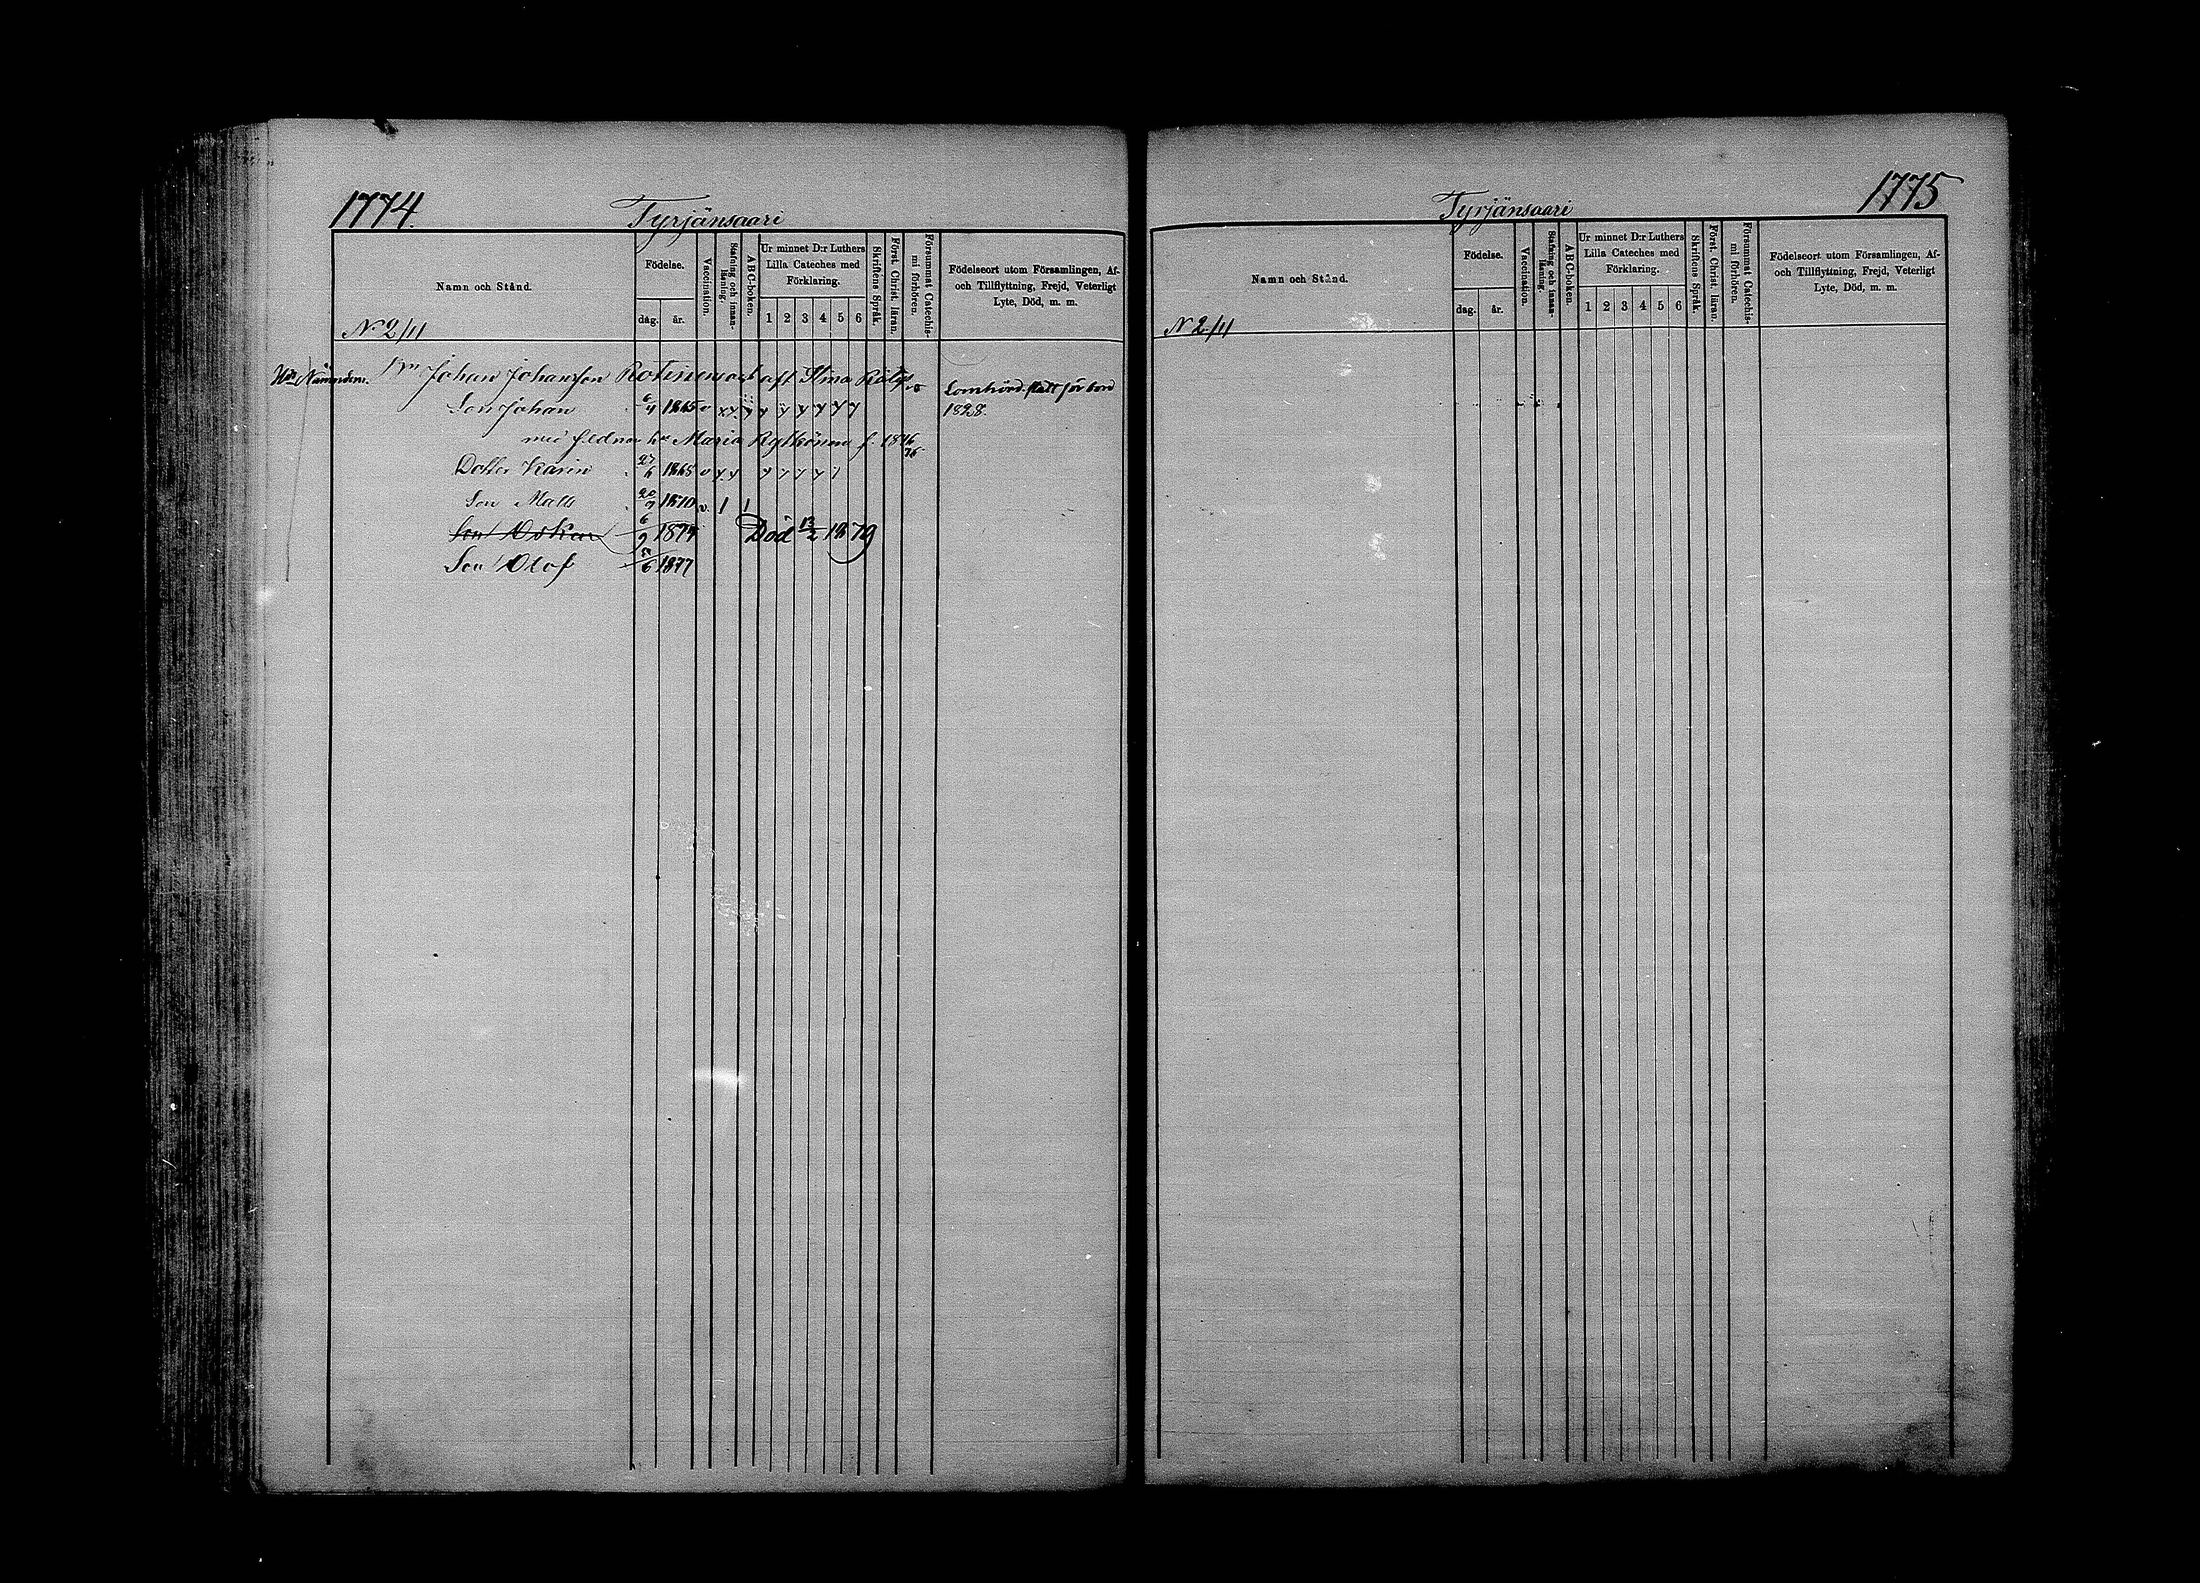 1774.
Tyrjänsaari
Namn och Stånd.
Födelse.
dag.
år.
Vaccination.
Stafning och innan-
läsning.
ABC-boken.
Ur minnet D:r Luthers
Lilla Cateches med
Förklaring.
1 2 3 4 5 6
Skriftens Språk.
Först. Christ. läran.
Försummat Catechis-
mi förhören.
Födelseort utom Församlingen, Af-
och Tillflyttning, Frejd, Veterligt
Lyte, Död, m. m.
N 2/11
Johan Johansson Rotinen
Son Johan 1865
1898
Maria f. 1846
Dotter Karin 27/6 1865
Son Matts 1870
Son Oskar 6/9 Död 13/2 1879
Son Olof 1877
1775
Tyrjänsaari
Namn och Stånd.
Födelse.
dag.
år.
Vaccination.
Stafning och innan-
läsning.
ABC-boken.
Ur minnet D:r Luthers
Lilla Cateches med
Förklaring.
1 2 3 4 5 6
Skriftens Språk.
Först. Christ. läran.
Försummat Catechis-
mi förhören.
Födelseort utom Församlingen, Af-
och Tillflyttning, Frejd, Veterligt
Lyte, Död, m. m.
N 2/11